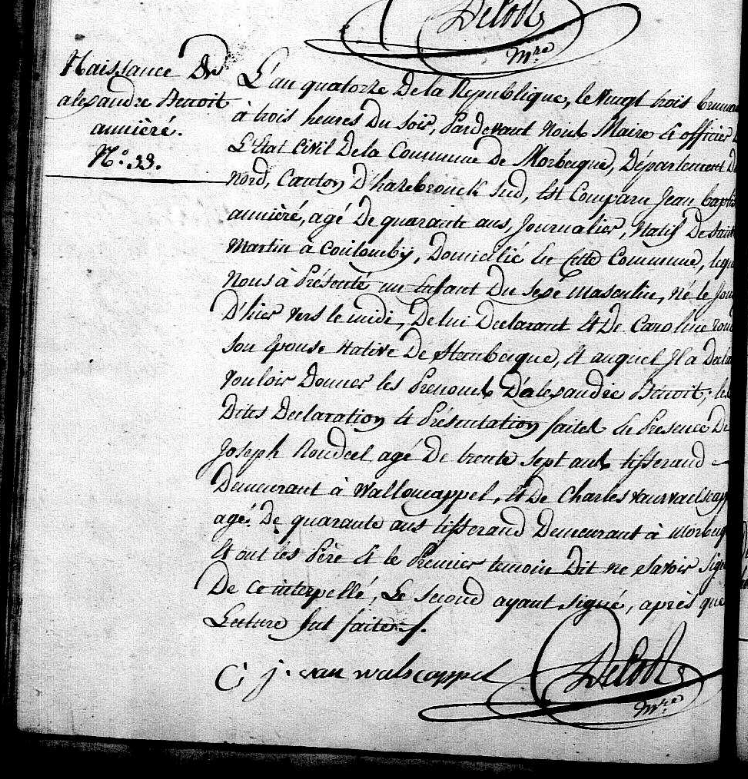 Delools
Mre
Naissance De
alexandre Benoit
annièré.
N.º 33.
L'an quatorze De la Republique, le vingt trois brumai
à trois heures Du Soir, Pardevant Nous Maire & officier D
L'Etat Civil De la Commune De Morbecque, Département D
nord, Canton D'hazebrouck Sud, Est Comparu Jean bapti
annièré, agé De quarante ans, Journalier, Natif De Saint
Martin à Coulomby, Domicilié En Cette Commune, leque
Nous à Présenté un Enfant Du Sexe masculin, né le Jour
D'hier vers le midi, De lui Declarant & De Caroline
Son épouse native De Steenbecque, & auquel Il a Decla
vouloir Donner les Prenoms D'alexandre Benoit; les
Dites Declaration & Présentation faites En Presence De
Joseph Roudeel agé De trente Sept ans tisserand
Demeurant à Walloncappel, & De Charles vanwalscapp
agé De quarante ans tisserand Demeurant à morbecq
& ont les Père & le Premier temoin Dit ne Savoir Sign
De Ce interpellé, Le Second ayant signé, après que
Lecture fut faite.
C j. van walscappel
Delools
Mre